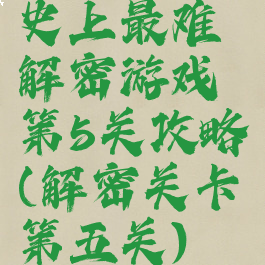 史上最难
解密游戏
第5关攻略
(解密关卡
第五关)